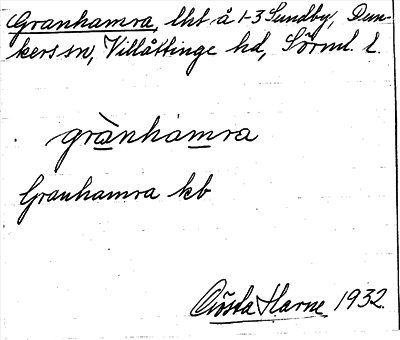 Granhamra, lht å 1-3 Sundby, Dun-
kers sn, Villåttinge hd, Sörml. l.
grànhamra
Granhamra kb
Gösta Harne 1932.